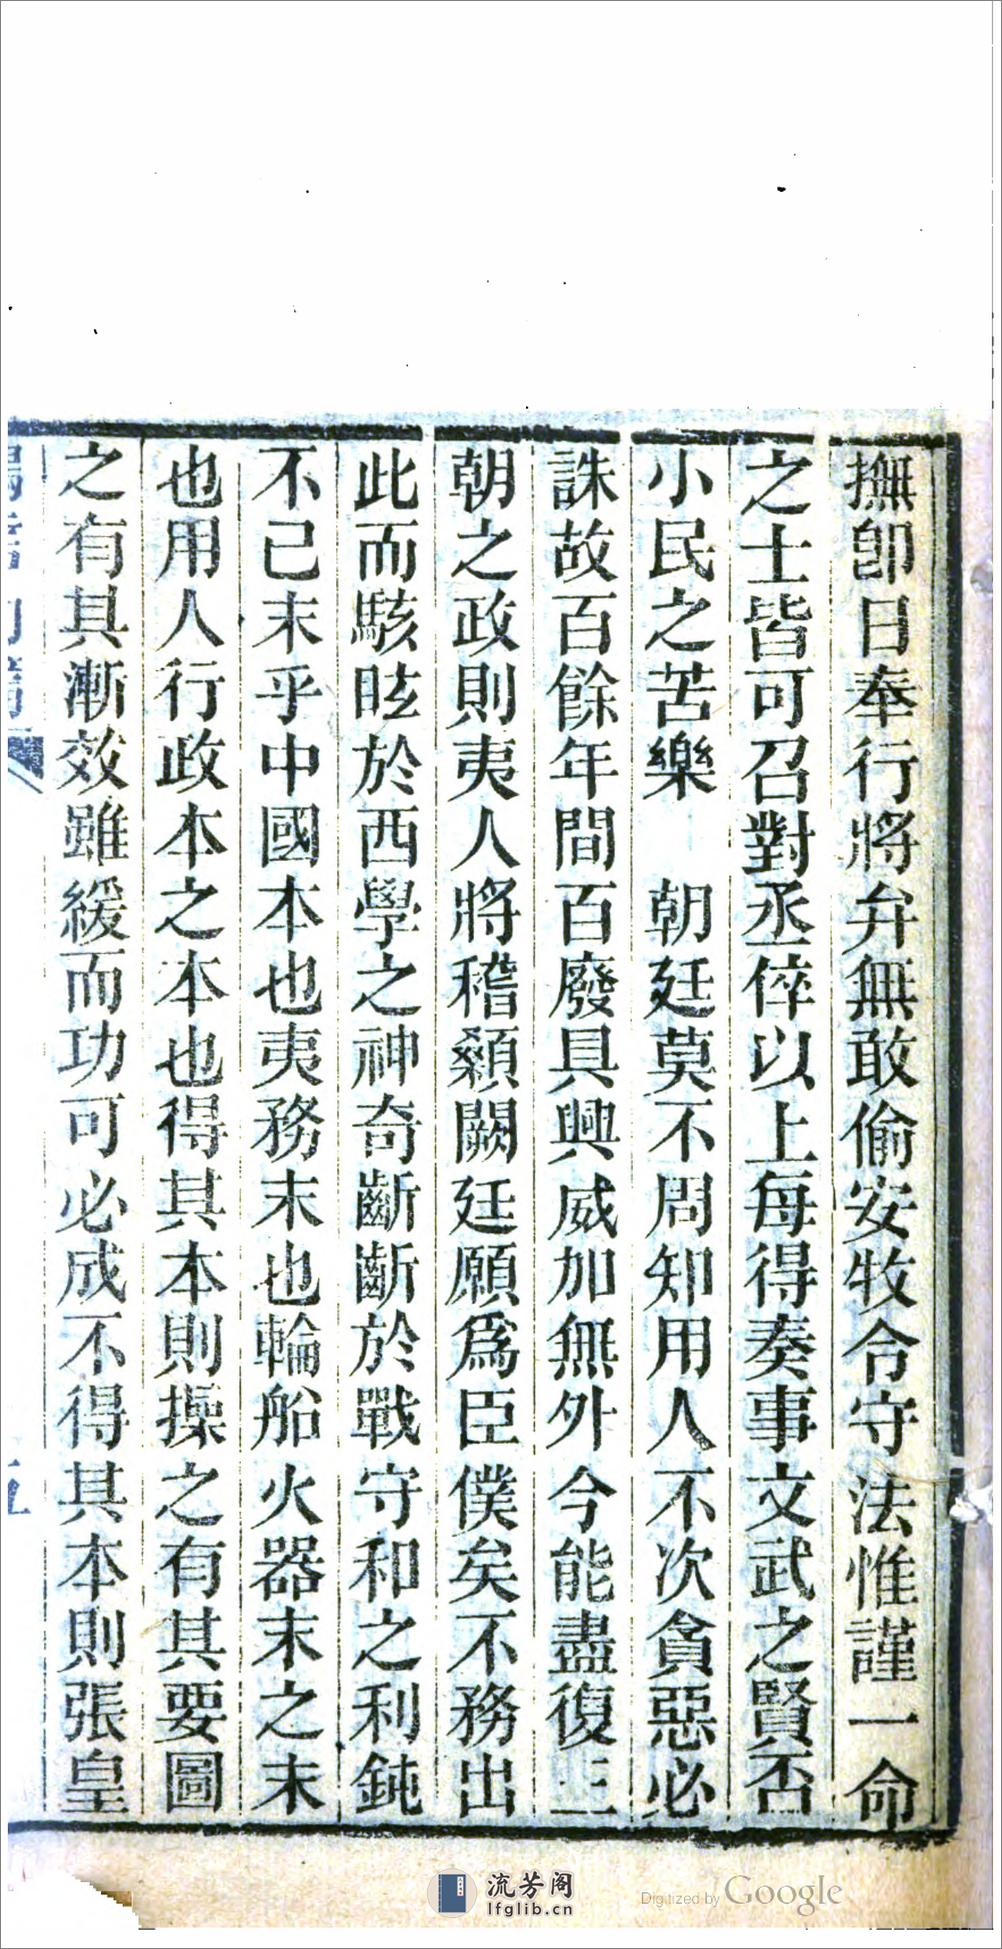 撫卽日奉行將弁無敢偷安牧令守法惟謹一命
之士皆可召對丞倅以上每得奏事文武之賢否
小民之苦樂　朝廷莫不周知用人不次貪惡必
誅故百餘年間百廢具興威加無外今能盡復三
朝之政則夷人將稽顙闕廷願爲臣僕矣不務出
此而駭眩於西學之神奇齗齗於戰守和之利鈍
不已末乎中國本也夷務末也輪船火器末之末
也用人行政本之本也得其本則操之有其要圖
之有其漸效雖緩而功可必成不得其本則張皇
流芳阁
lfglib.cn
Digitized by Google